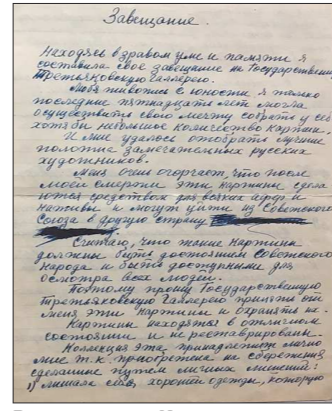 Завещание.
Находясь в здравом уме и памяти я
составила своё завещание на Государственную
Третьяковскую Галлерею.
Любя живопись с юности я только
последние пятнадцать лет могла
осуществить свою мечту собрать у себя
хотя бы небольшое количество картин.
И мне удалось отобрать лучшие
полотна замечательных русских
художников.
Меня очень огорчает, что после
моей смерти эти картины сдела
ются средством для всяких афер и
наживы и могут уйти из Советского
Союза в другую страну
Считаю, что такие картины
должны быть достоянием Советского
Народа и быть доступными для
осмотра всех людей.
Поэтому прошу Государственную
Третьяковскую Галлерею принять от
меня эти картины и охранять их.
Картины находятся в отличном
состоянии и не реставрированы.
Коллекция эта принадлежит лично
мне т.к. приобретена на сбережения
сделанные путем личных лишений:
1) лишала себя, хорошей одежды, которую